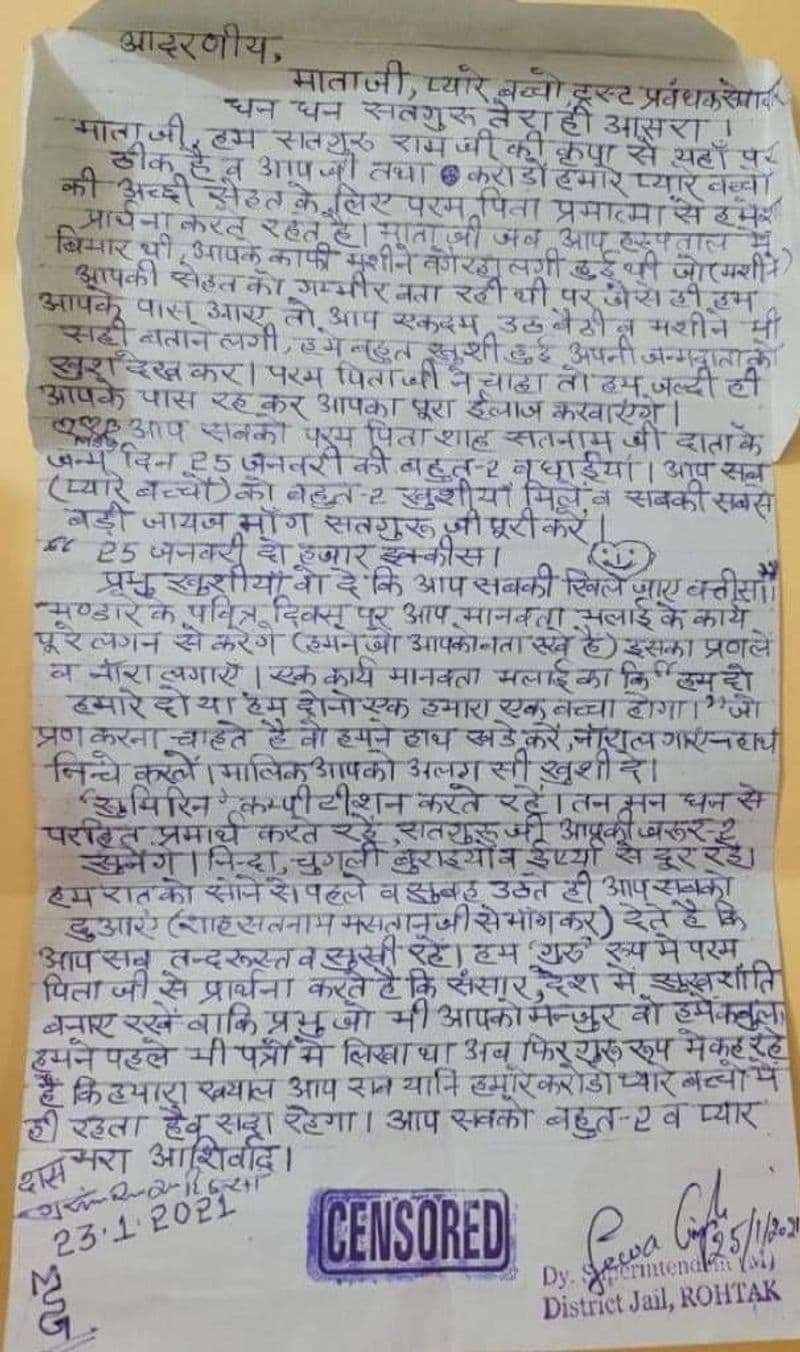 आदरणीय,
माताजी, प्यारे बच्चो, ट्रस्ट प्रबंधक सेवादार
धन धन सतगुरु तेरा ही आसरा ।
माताजी, हम सतगुरु राम जी की कृपा से यहाँ पर
ठीक है व आप जी तथा करोड़ों हमारे प्यारे बच्चों
की अच्छी सेहत के लिए परम पिता प्रमात्मा से हमेशा
प्रार्थना करते रहते हैं। माता जी जब आप हस्पताल में
बिमार थी, आपके काफी मशीनें वगैरहा लगी हुई थी जो (मशीनें)
आपकी सेहत को गम्भीर बता रही थी पर जैसे ही हम
आपके पास आए तो आप एकदम उठ बैठी व मशीनें भी
सही बताने लगी, हमें बहुत खुशी हुई अपनी जन्मदाता को
खुश देख कर। परम पिता जी ने चाहा तो हम जल्दी ही
आपके पास रह कर आपका पूरा ईलाज करवाएंगे।
आप सबको परम पिता शाह सतनाम जी दाता के
जन्म दिन 25 जनवरी की बहुत-2 वधाईयां। आप सब
(प्यारे बच्चों) को बहुत-2 खुशीयां मिलें व सबकी सबसे
बड़ी जायज माँग सतगुरु जी पूरी करें।
“ 25 जनवरी दो हजार इक्कीस।
प्रभु खुशीयां वो दे कि आप सबकी खिल जाए बत्तीसी।"
भण्डारे के पवित्र दिवस पर आप मानवता भलाई के कार्य
पूरे लगन से करेंगे (हमने जो आपको बता रखे है) इसका प्रण लें
व नारा लगाएं। एक कार्य मानवता भलाई का कि “हम दो
हमारे दो या हम दोनो एक हमारा एक बच्चा होगा।” जो
प्रण करना चाहते है वो हमने हाथ खड़े करें, नारा लगाएं व हाथ
निच्चे करलें। मालिक आपको अलग सी खुशी दे।
'सुमिरन' कम्पीटीशन करते रहें। तन मन धन से
परहित प्रमार्थ करते रहें, सतगुरु जी आपकी जरूर-2
सुनेंगे। निन्दा, चुगली बुराईयों व ईर्ष्या से दूर रहें।
हम रात को सोने से पहले व सुबह उठते ही आप सबको
दुआएं (शाह सतनाम मस्ताना जी से माँग कर) देते है कि
आप सब तन्दरूस्त व सुखी रहें। हम 'गुरु' रूप में परम
पिता जी से प्रार्थना करते है कि संसार, देश में सुख शांति
बनाए रखें बाकि प्रभु जो भी आपको मन्जुर वो हमें कबुल।
हमने पहले भी पत्रों में लिखा था अब फिर गुरु रूप में कह रहे
है कि हमारा ख्याल आप सब यानि हमारे करोड़ों प्यारे बच्चों में
ही रहता है व सदा रहेगा। आप सबको बहुत-2 व प्यार
भरा आशिर्वाद।
दास
23.1.2021
CENSORED
25/1/2021
Dy. Superintendent (M)
District Jail, ROHTAK